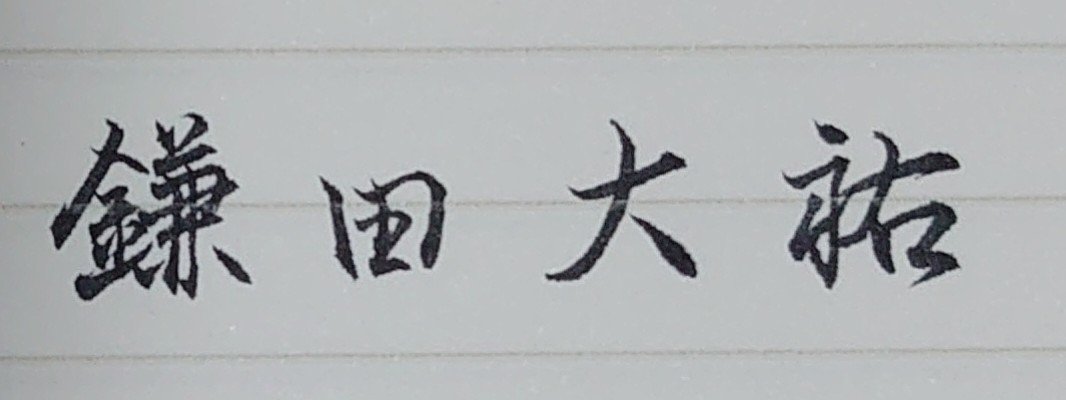 鎌田大祐